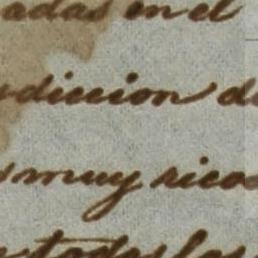 adas en el
diccion de
muy ricos
todos los